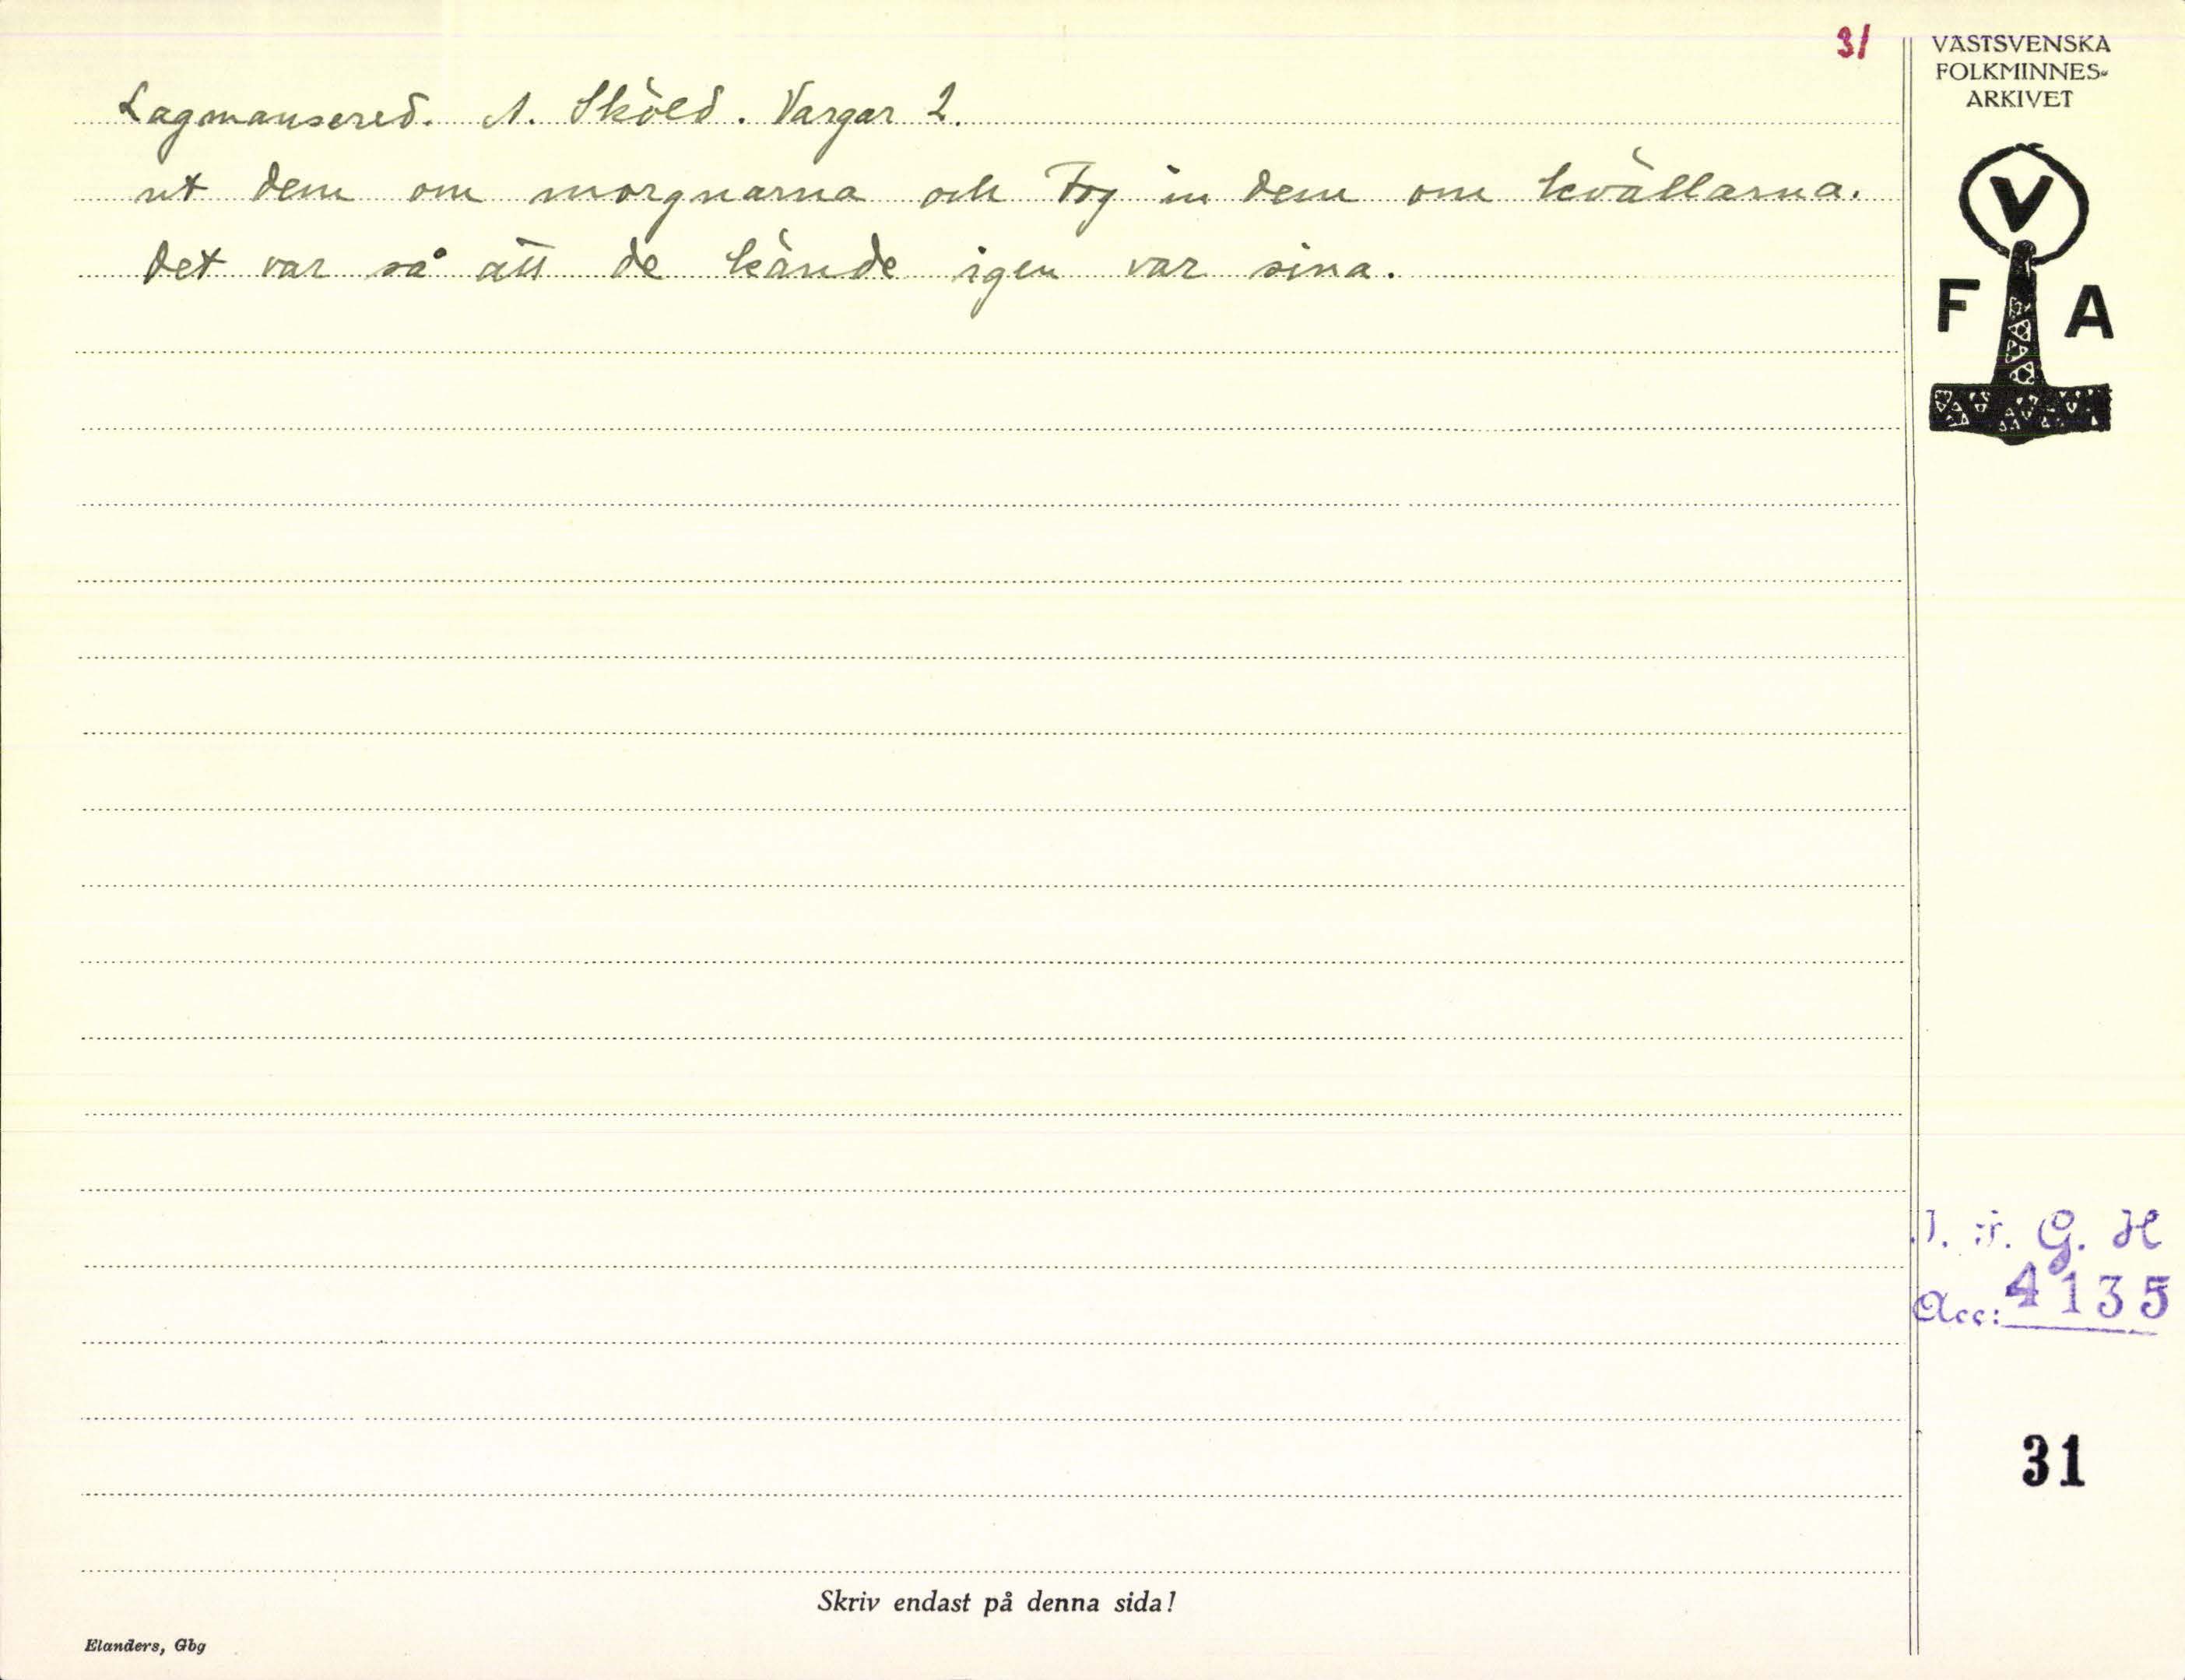 31
VÄSTSVENSKA
FOLKMINNES-
ARKIVET
Lagmansered. A. Sköld. Vargar 2.
ut dem om morgnarna och tog in dem om kvällarna.
Det var så att de kände igen var sina.
V
F A
I. G. H
Acc: 4135
31
Skriv endast på denna sida!
Elanders, Gbg